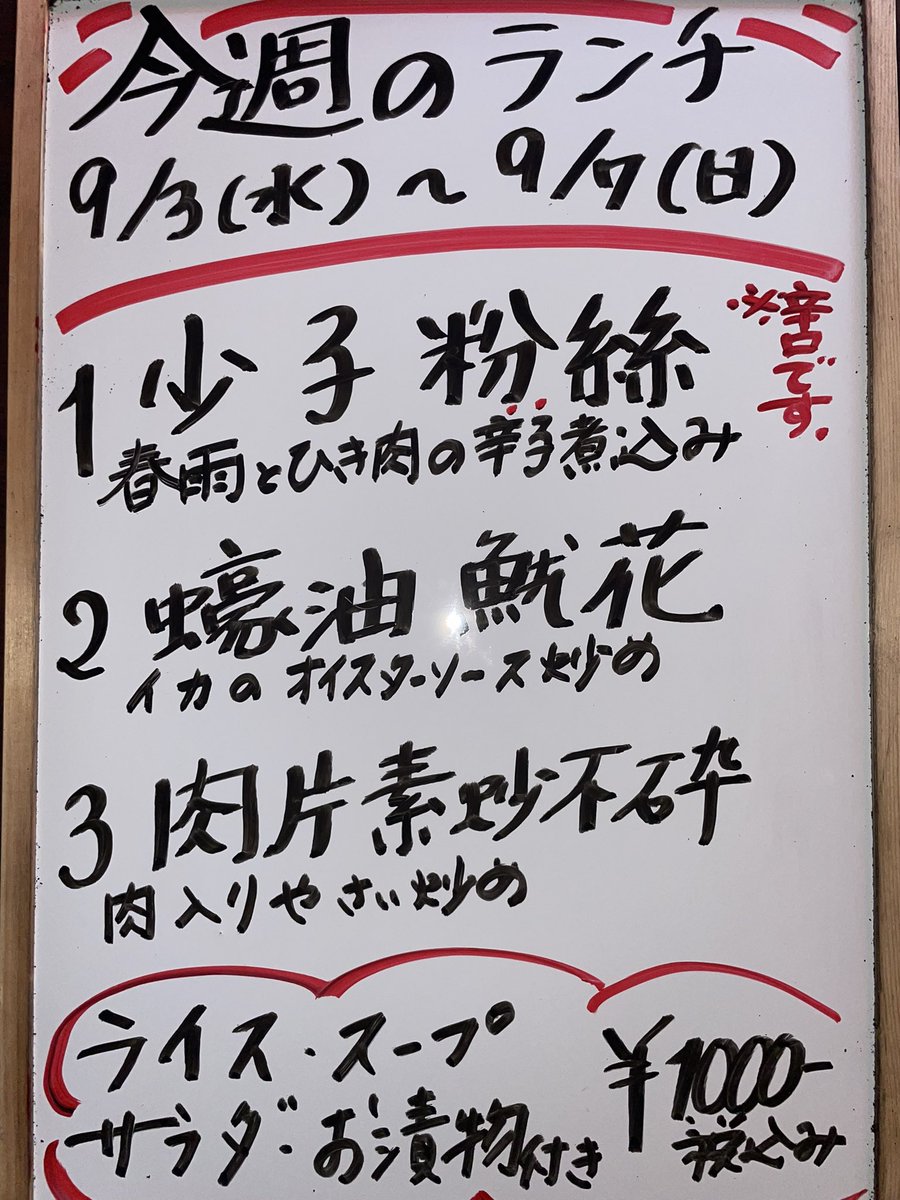 今週のランチ
9/3(水)〜9/7(日)
※辛口です。
1 少子粉絲
春雨とひき肉の辛子煮込み
2 蠔油魷花
イカのオイスターソース炒め
3 肉片素炒不石卆
肉入りやさい炒め
ライス・スープ
サラダ・お漬物付き
¥1000-
税込み